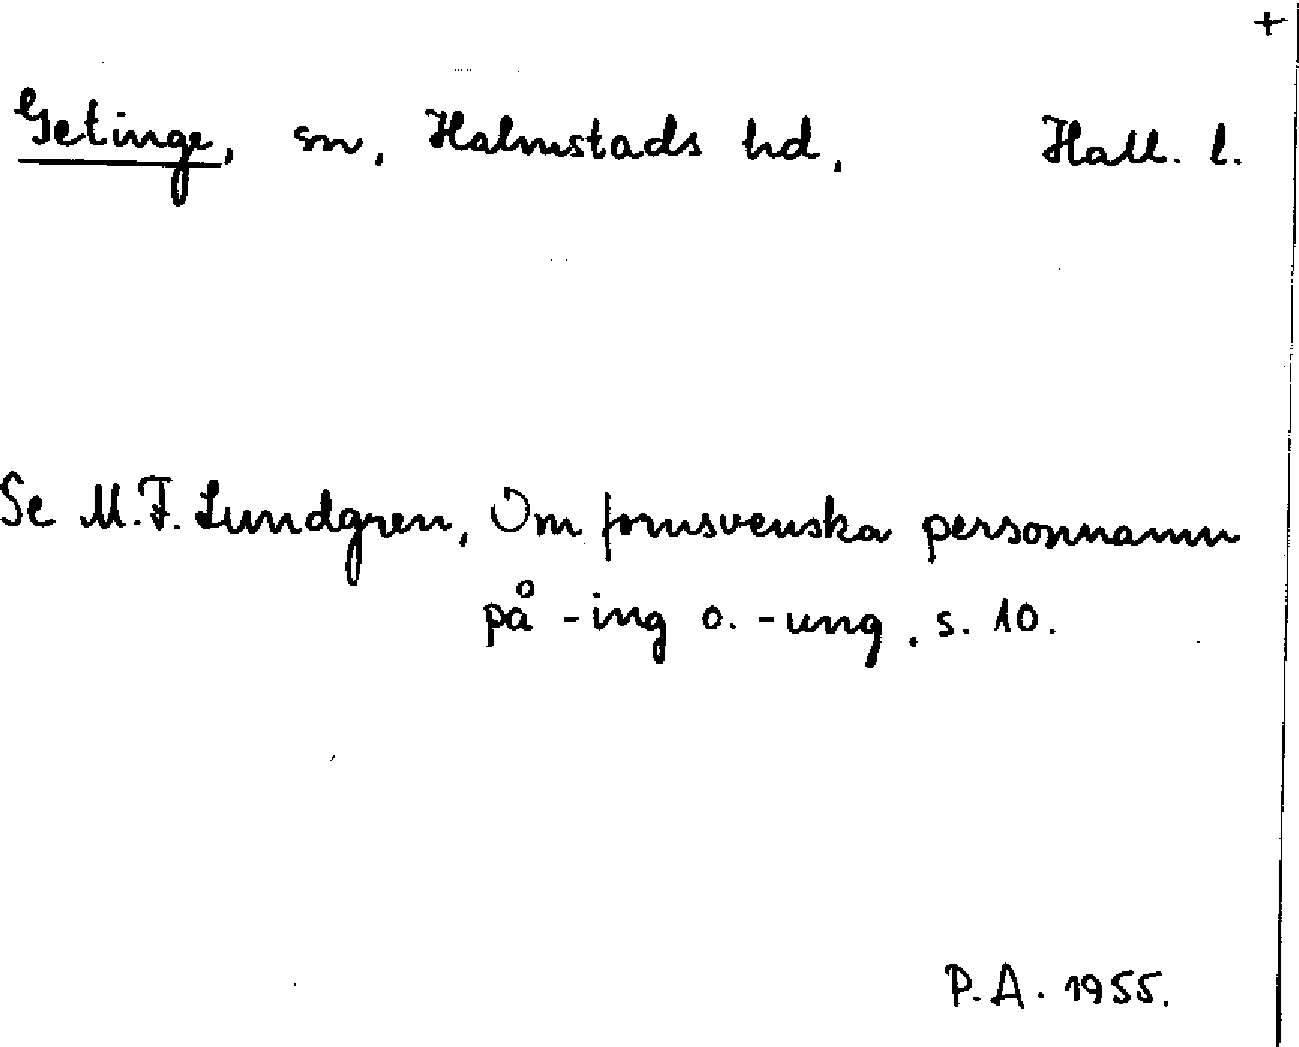 +
Getinge, sn, Halmstads hd, Hall. l.
Se M.F. Lundgren, Om fornsvenska personnamn
på -ing o. -ung, s. 10.
P.A. 1955.